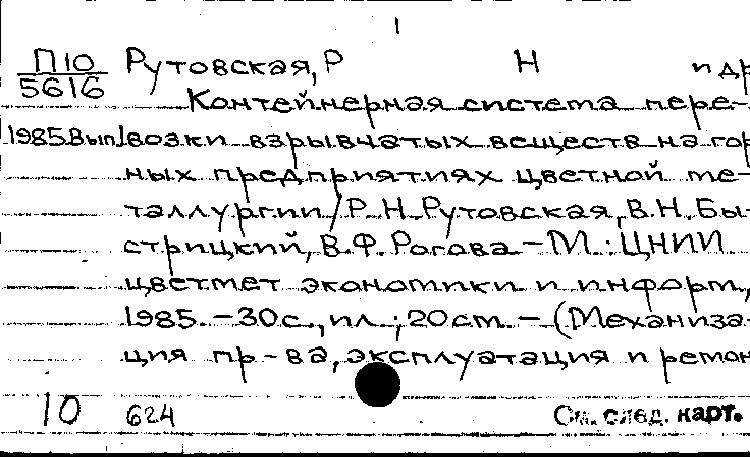 1
П10 Рутовская, Р Н и др
5616
Контейнерная система пере-
1985 Вып.1 возки взрывчатых веществ на гор
ных предприятиях цветной ме-
таллургии / Р.Н. Рутовская, В.Н. Бы-
стрицкий, В.Ф. Рогова. - М.: ЦНИИ
цветмет экономики и информ.,
1985. - 30 с., ил.; 20 см. - (Механиза-
ция пр-ва, эксплуатация и ремон
10 624 См. след. карт.